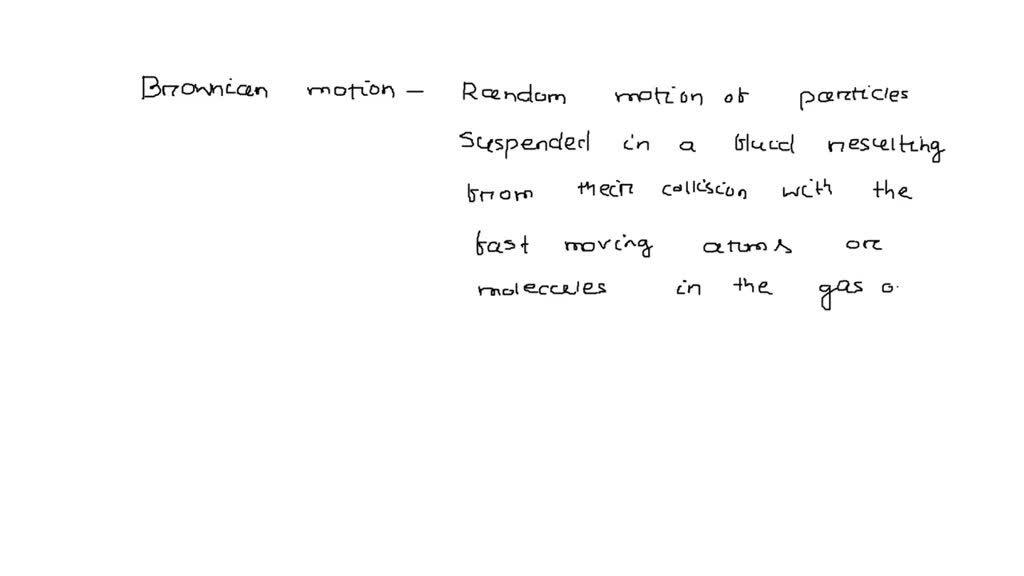 Brownian motion - Random motion of particles
Suspended in a fluid resulting
from their collision with the
fast moving atoms or
molecules in the gas o